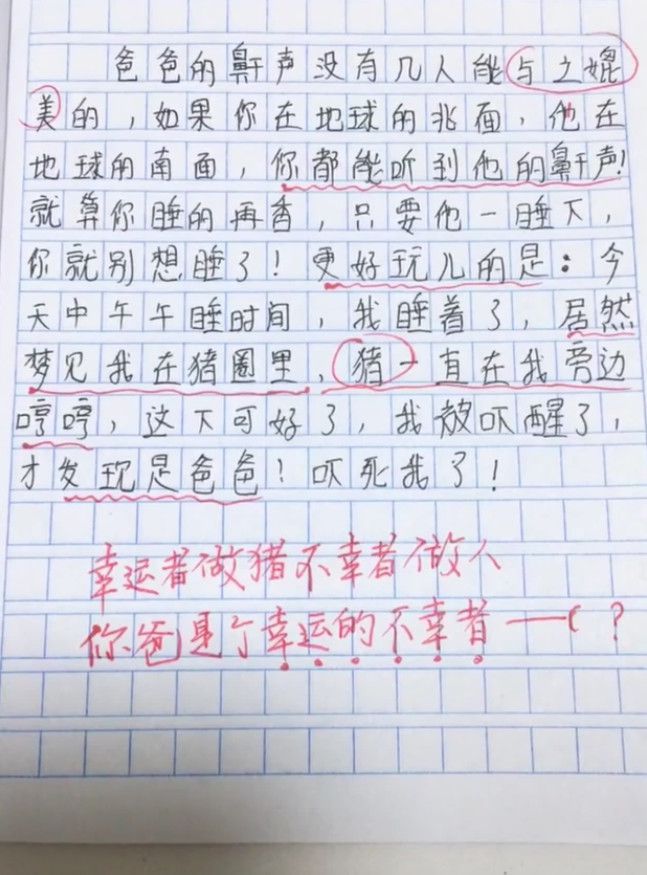 爸爸的鼾声没有几人能与之媲
美的，如果你在地球的北面，他在
地球的南面，你都能听到他的鼾声！
就算你睡的再香，只要他一睡下，
你就别想睡了！更好玩儿的是：今
天中午午睡时间，我睡着了，居然
梦见我在猪圈里，猪一直在我旁边
哼哼，这下可好了，我被吓醒了，
才发现是爸爸！吓死我了！
幸运者做猪不幸者做人
你爸是个幸运的不幸者——（？